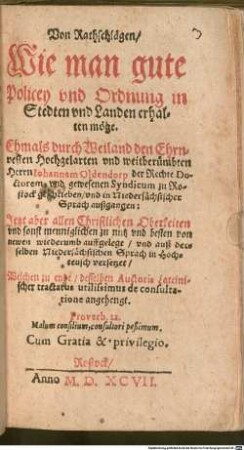 Von Rathschlägen/
Wie man gute
Policey vnd Ordnung in
Stedten vnd Landen erhal-
ten möge.
Ehmals durch Weiland den Ehrn-
vesten Hochgelarten vnd weitberümbten
Herrn Iohannem Oldendorp der Rechte Do-
ctorem, vnd gewesenen Syndicum zu Ro-
stock geschrieben/ vnd in Niedersächsischer
Sprach außgangen:
Jetzt aber allen Christlichen Oberkeiten
vnd sonst menniglichen zu nutz vnd besten von
newen wiederumb auffgelegt/ vnd auß der-
selben Niedersächsischen Sprach in Hoch-
teutsch versetzet/
Welchen zu ende/ desselben Auctoris Lateini-
scher tractatus utilissimus de consulta-
tione angehengt.
Proverb. 12.
Malum consilium, consultori pessimum.
Cum Gratia & privilegio.
Rostock/
Anno M. D. XCVII.